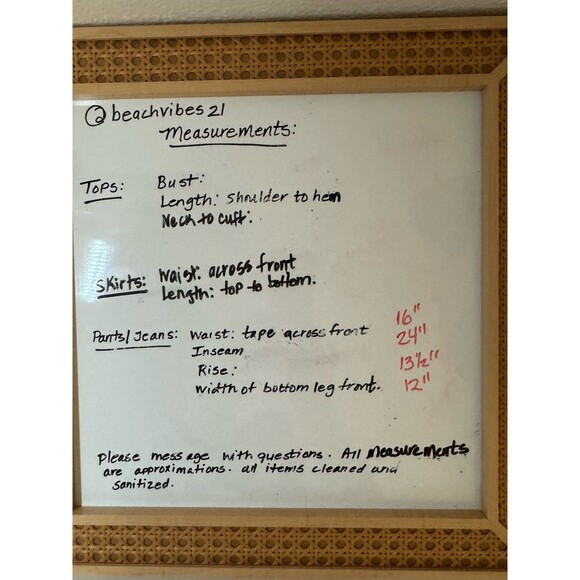 @beachvibes21
Measurements:
Tops: Bust:
Length: Shoulder to hem
Neck to cuff:
Skirts: Waist: across front
Length: top to bottom.
Pants/Jeans: Waist: tape across front 16"
Inseam 24"
Rise: 13½"
width of bottom leg front. 12"
Please message with questions. All measurements
are approximations. all items cleaned and
sanitized.